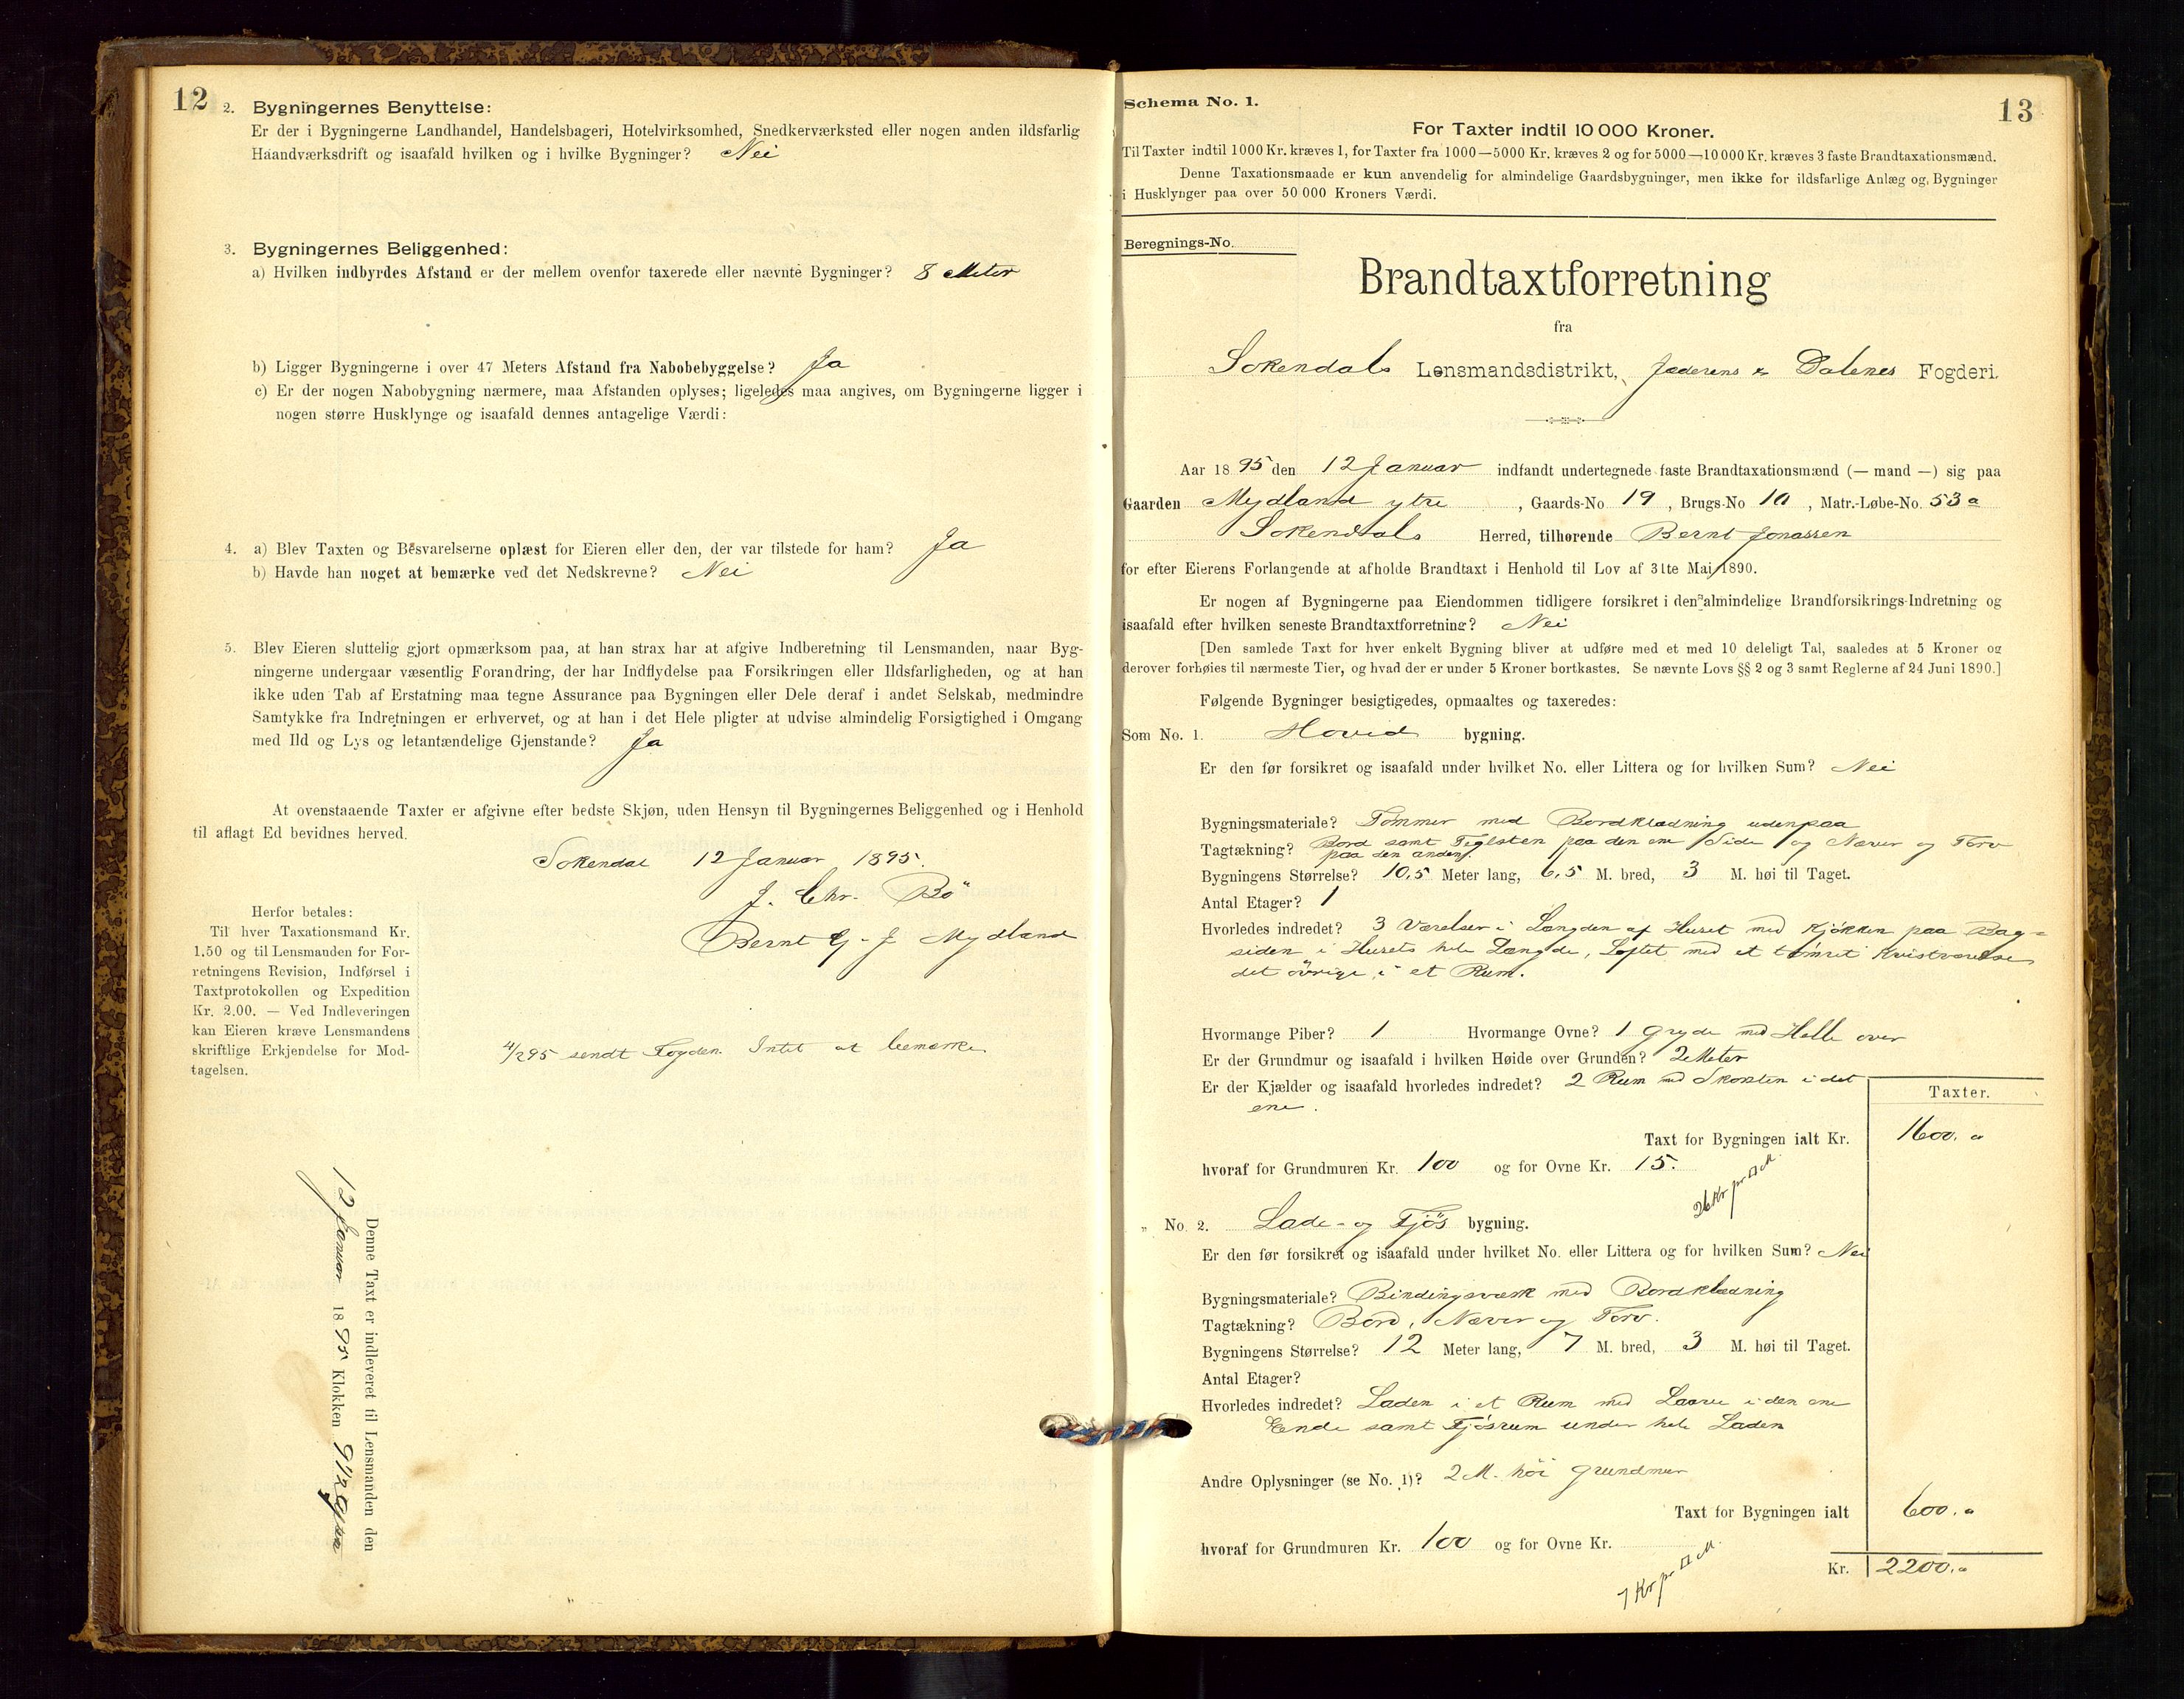 12
2. Bygningernes Benyttelse:
Er der i Bygningerne Landhandel, Handelsbageri, Hotelvirksomhed, Snedkerværksted eller nogen anden ildsfarlig
Haandværksdrift og isaafald hvilken og i hvilke Bygninger? Nei
3. Bygningernes Beliggenhed:
a) Hvilken indbyrdes Afstand er der mellem ovenfor taxerede eller nævnte Bygninger? 8 Meter
b) Ligger Bygningerne i over 47 Meters Afstand fra Nabobebyggelse? Ja
c) Er der nogen Nabobygning nærmere, maa Afstanden oplyses; ligeledes maa angives, om Bygningerne ligger i
nogen større Husklynge og isaafald dennes antagelige Værdi:
4. a) Blev Taxten og Besvarelserne oplæst for Eieren eller den, der var tilstede for ham? Ja
b) Havde han noget at bemærke ved det Nedskrevne? Nei
5. Blev Eieren sluttelig gjort opmærksom paa, at han strax har at afgive Indberetning til Lensmanden, naar Byg-
ningerne undergaar væsentlig Forandring, der har Indflydelse paa Forsikringen eller Ildsfarligheden, og at han
ikke uden Tab af Erstatning maa tegne Assurance paa Bygningen eller Dele deraf i andet Selskab, medmindre
Samtykke fra Indretningen er erhvervet, og at han i det Hele pligter at udvise almindelig Forsigtighed i Omgang
med Ild og Lys og letantændelige Gjenstande? Ja
At ovenstaaende Taxter er afgivne efter bedste Skjøn, uden Hensyn til Bygningernes Beliggenhed og i Henhold
til aflagt Ed bevidnes herved.
Sokendal 12 Januar 1895.
J. Chr. Bö
Bernt G. J. Mydland
Herfor betales:
Til hver Taxationsmand Kr.
1.50 og til Lensmanden for For-
retningens Revision, Indførsel i
Taxtprotokollen og Expedition
Kr. 2.00. — Ved Indleveringen
kan Eieren kræve Lensmandens
skriftlige Erkjendelse for Mod-
tagelsen.
4/2 95 sendt Fogden. Intet at bemærke
Denne Taxt er indleveret til Lensmanden den
12 Januar 1895 Klokken 9 1/2
13
Schema No. 1.
For Taxter indtil 10 000 Kroner.
Til Taxter indtil 1000 Kr. kræves 1, for Taxter fra 1000—5000 Kr. kræves 2 og for 5000—10 000 Kr. kræves 3 faste Brandtaxationsmænd.
Denne Taxationsmaade er kun anvendelig for almindelige Gaardsbygninger, men ikke for ildsfarlige Anlæg og Bygninger
i Husklynger paa over 50 000 Kroners Værdi.
Beregnings-No.
Brandtaxtforretning
fra
Sokendals Lensmandsdistrikt, Jæderens & Dalenes Fogderi.
Aar 1895 den 12 Januar indfandt undertegnede faste Brandtaxationsmænd (— mand —) sig paa
Gaarden Mydland ytre, Gaards-No 19, Brugs-No 10, Matr.-Løbe-No. 53a
Sokendals Herred, tilhørende Bernt Jonassen
for efter Eierens Forlangende at afholde Brandtaxt i Henhold til Lov af 31te Mai 1890.
Er nogen af Bygningerne paa Eiendommen tidligere forsikret i den almindelige Brandforsikrings-Indretning og
isaafald efter hvilken seneste Brandtaxtforretning? Nei
[Den samlede Taxt for hver enkelt Bygning bliver at udføre med et med 10 deleligt Tal, saaledes at 5 Kroner og
derover forhøies til nærmeste Tier, og hvad der er under 5 Kroner bortkastes. Se nævnte Lovs §§ 2 og 3 samt Reglerne af 24 Juni 1890.]
Følgende Bygninger besigtigedes, opmaaltes og taxeredes:
Som No. 1. Hoved bygning.
Er den før forsikret og isaafald under hvilket No. eller Littera og for hvilken Sum? Nei
Bygningsmateriale? Tömmer med Bordklædning udenpaa
Tagtækning? Bord samt Teglsten paa den ene Side og Næver og Torv
paa den anden.
Bygningens Størrelse? 10,5 Meter lang, 6,5 M. bred, 3 M. høi til Taget.
Antal Etager? 1
Hvorledes indredet? 3 Værelser i Længden af Huset med Kjökken paa Bag-
siden i Husets hele Længde, Loftet med et tömret Kvistværelse
det övrige i et Rum.
Hvormange Piber? 1 Hvormange Ovne? 1 Gryde med Helle over
Er der Grundmur og isaafald i hvilken Høide over Grunden? 2 Meter
Er der Kjælder og isaafald hvorledes indredet? 2 Rum med Skorsten i det
ene.
Taxter.
Taxt for Bygningen ialt Kr. 1600.
hvoraf for Grundmuren Kr. 100 og for Ovne Kr. 15.
26 Kr pr □ M.
„ No. 2. Lade- og Fjös bygning.
Er den før forsikret og isaafald under hvilket No. eller Littera og for hvilken Sum? Nei
Bygningsmateriale? Bindingsværk med Bordklædning
Tagtækning? Bord, Næver og Torv.
Bygningens Størrelse? 12 Meter lang, 7 M. bred, 3 M. høi til Taget.
Antal Etager?
Hvorledes indredet? Laden i et Rum med Laave i den ene
Ende samt Fjösrum under hele Laden
Andre Oplysninger (se No. 1)? 2 M. höi Grundmur
Taxt for Bygningen ialt 600.
hvoraf for Grundmuren Kr. 100 og for Ovne Kr.
7 Kr pr □ M.
Kr. 2200.